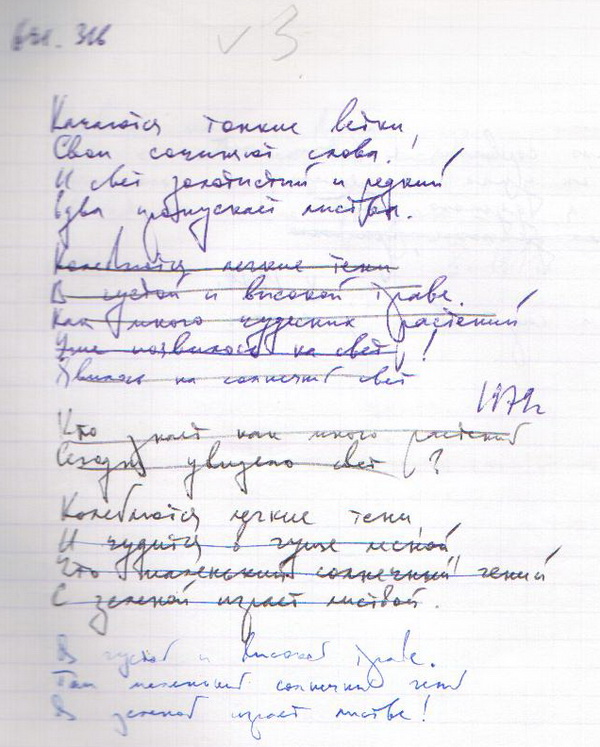 v 3
Качаются тонкие ветки,
Свои сочиняют слова.
И свет золотистый и редкий
Едва пропускает листва.
Колеблются легкие тени
В густой и высокой траве.
Как много чудесных растений
Уже появилось на свет!
Явилось на солнечный свет
1979г
Кто знает как много растений
Сегодня увидело свет?
Колеблются легкие тени
И чудится в гуще лесной
Что маленький солнечный гений
С зеленой играет листвой.
В густой и высокой траве.
Там маленький солнечный гений
В зеленой играет листве!